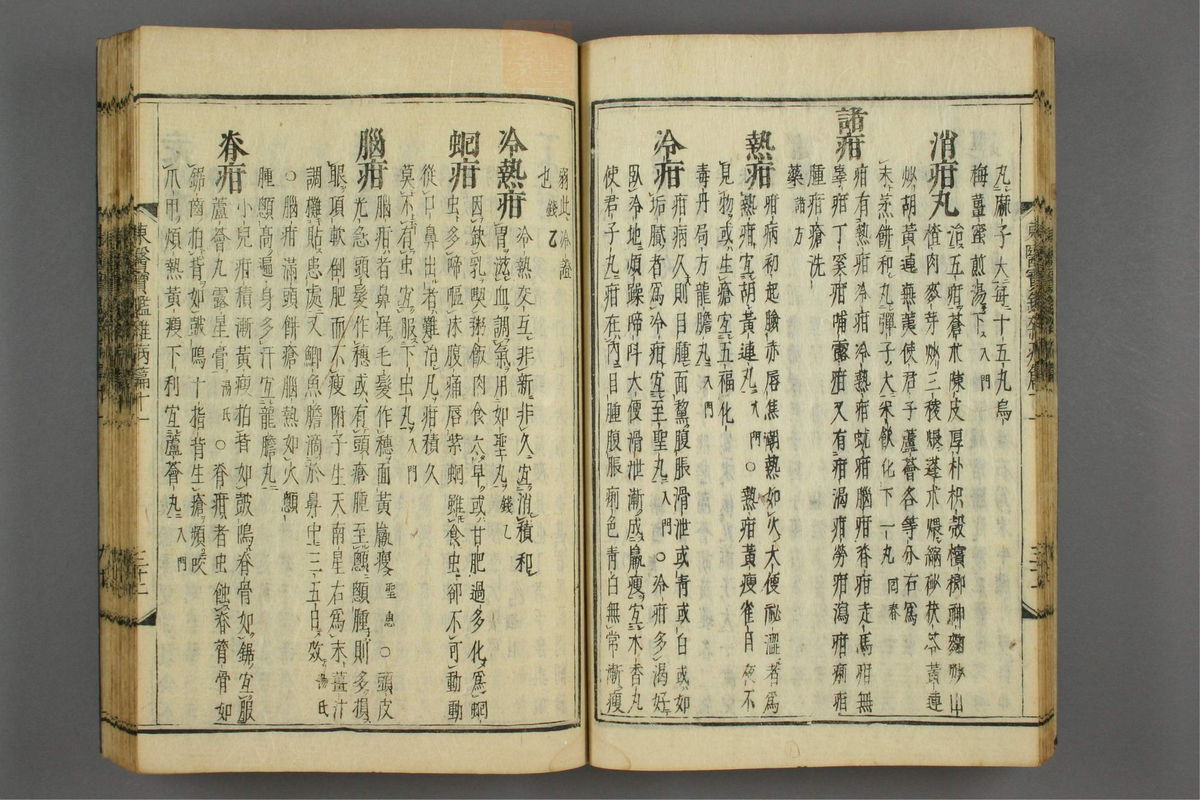 丸麻子大每十五丸烏
梅薑蜜煎湯下入門
消疳丸 治五疳蒼朮陳皮厚朴枳殼檳榔神麴炒山
楂肉麥芽炒三稜煨蓬朮煨縮砂茯苓黃連
炒胡黃連蕪荑使君子蘆薈各等分右爲
末蒸餅和丸彈子大米飮化下一丸回春
諸疳 疳有熱疳冷疳冷熱疳蚘疳腦疳脊疳走馬疳無
辜疳丁奚疳哺露疳又有疳渴疳勞疳瀉疳痢疳
腫疳瘡洗
藥諸方
熱疳 疳病初起臉赤唇焦潮熱如火大便祕澁者爲
熱疳宜胡黃連丸入門○熱疳黃瘦雀目夜不
見物或生瘡宜五福化
毒丹局方龍膽丸入門
冷疳 疳病久則目腫面黧腹脹滑泄或靑或白或如
垢膩者爲冷疳宜至聖丸入門○冷疳多渴好
臥冷地煩躁啼叫大便滑泄漸成羸瘦宜木香丸
使君子丸疳在內目腫腹脹痢色靑白無常漸瘦
弱此冷證
也錢乙
冷熱疳 冷熱交互非新非久宜消積和
胃滋血調氣用如聖丸錢乙
蛔疳 因飮乳喫粥飯肉食太早或甘肥過多化爲蛔
虫多啼嘔沫腹痛唇紫蛔雖食虫卻不可動動
從口鼻出者難治凡疳積久
莫不有虫宜服下虫丸入門
腦疳 腦疳者鼻痒毛髮作穗面黃羸瘦聖惠○頭皮
光急頭髮作穗或有頭瘡腫至顖顖腫則多損
眼項軟倒肥而不瘦附子生天南星右爲末薑汁
調攤貼患處又鯽魚膽滴於鼻中三五日效湯氏
○腦疳滿頭餠瘡腦熱如火顖
腫顖高遍身多汗宜龍膽丸
脊疳 小兒疳積漸黃瘦拍背如鼓鳴脊骨如鋸宜服
蘆薈丸露星膏湯氏○脊疳者虫蝕脊膂骨如
鋸齒拍背如鼓鳴十指背生瘡頻咬
爪甲煩熱黃瘦下利宜蘆薈丸入門
東醫寶鑑雜病篇十一
三十二